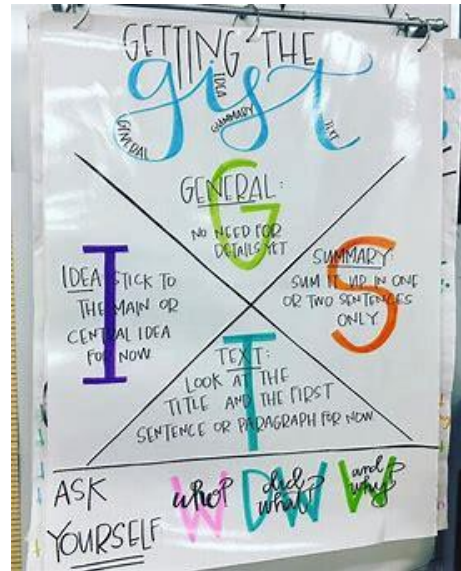 GETTING THE
gist
GENERAL
IDEA
SUMMARY
TEXT
G
GENERAL:
NO NEED FOR
DETAILS YET
I
IDEA STICK TO
THE MAIN OR
CENTRAL IDEA
FOR NOW
S
SUMMARY:
SUM IT UP IN ONE
OR TWO SENTENCES
ONLY
T
TEXT:
LOOK AT THE
TITLE AND THE FIRST
SENTENCE OR PARAGRAPH FOR NOW
ASK
YOURSELF
W
who?
DW
did
what?
W
and
why?